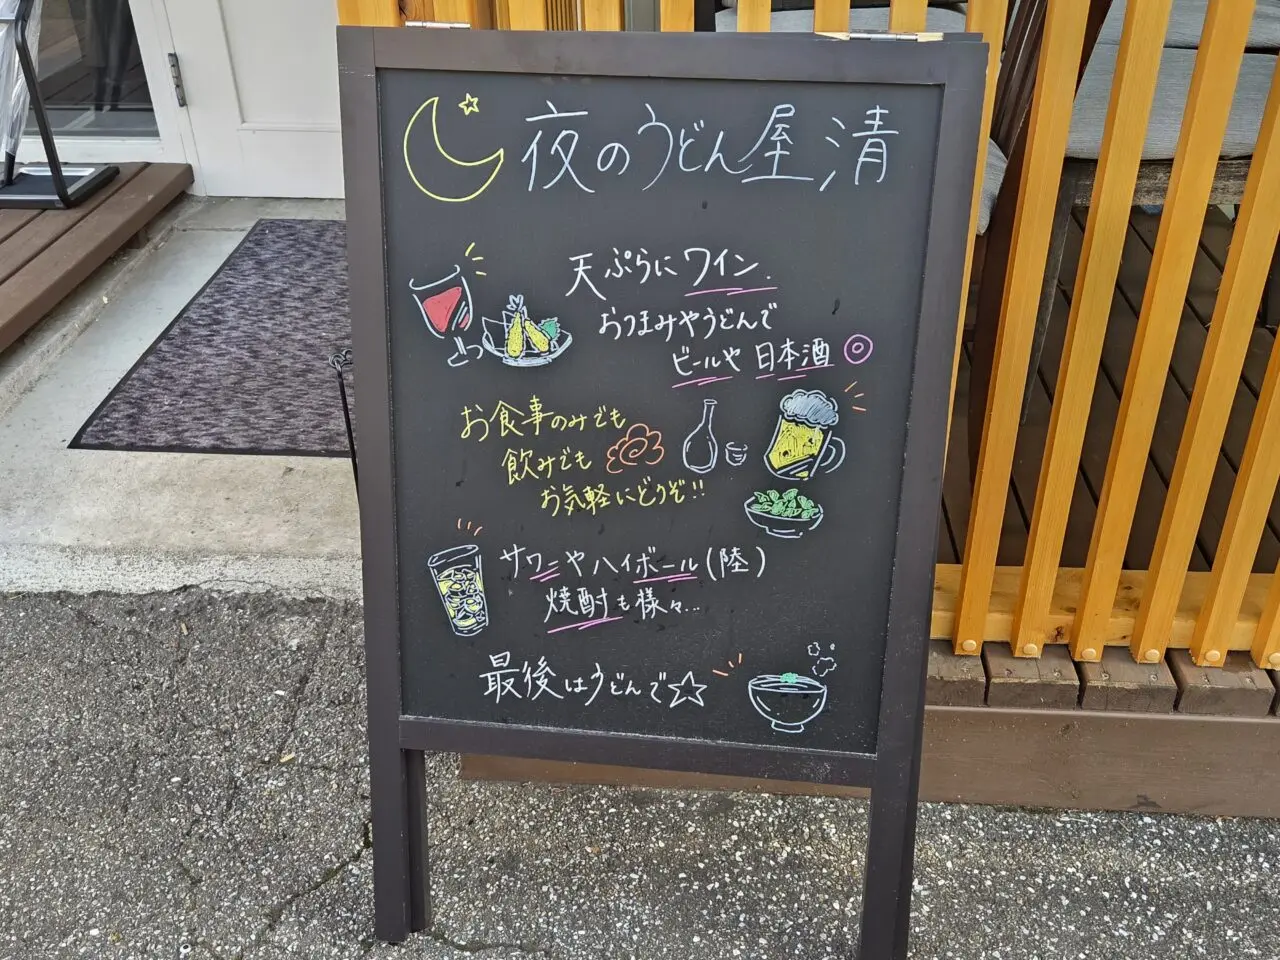 夜のうどん屋 清
天ぷらにワイン.
おつまみやうどんで
ビールや日本酒◎
お食事のみでも
飲みでも
お気軽にどうぞ!!
サワーやハイボール(陸)
焼酎も様々...
最後はうどんで☆